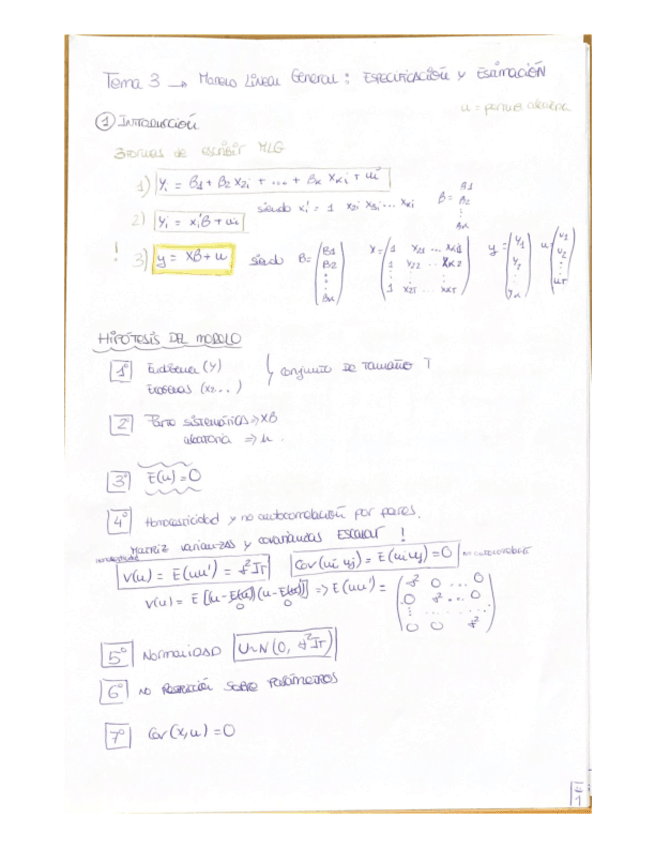 Tema 3 → Modelo Lineal General: Especificación y Estimación
u = perturbaciones
① Introducción
3 formas de escribir MLG
1) Yi = B1 + B2 X2i + ... + Bk Xki + ui
siendo xi' = 1 X2i X3i ... Xki B = B1 B2 ⋮ Bk
2) Yi = xi'B + ui
! 3) y = XB + u siendo B = (B1 B2 ⋮ Bk) X = (1 X21 ... Xk1 1 X22 ... Xk2 ⋮ 1 X2T ... XkT) y = (Y1 Y2 ⋮) u = (u1 u2 ⋮ uT)
Hipótesis del modelo
1º Endógena (Y)
Exógenas (X2...) } conjunto de tamaño T
2º Parte sistemática => XB
aleatoria => u.
3º E(u) = 0
4º Homocedasticidad y no autocorrelación por pares.
Matriz varianzas y covarianzas Escalar !
V(u) = E(uu') = σ² IT Cov(ui uj) = E(ui uj) = 0 no autocorrelación
V(u) = E[(u - E(u))(u - E(u))'] => E(uu') = (σ² 0 ... 0 0 σ² ... 0 ⋮ 0 0 σ²)
0 0
5º Normalidad U~N(0, σ² IT)
6º no restricción sobre parámetros
7º Cov(x,u) = 0